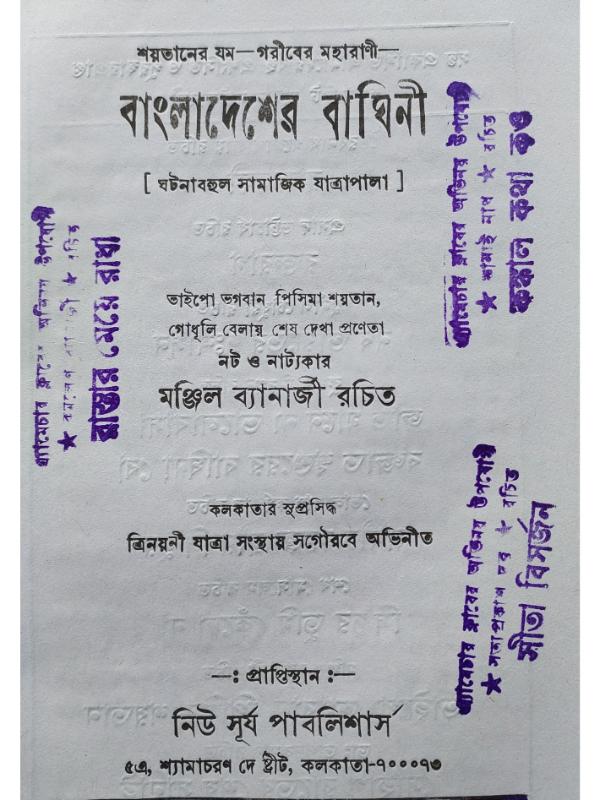 শয়তানের যম— গরীবের মহারাণী—
বাংলাদেশের বাঘিনী
[ ঘটনাবহুল সামাজিক যাত্রাপালা ]
ভাইপো ভগবান পিসিমা শয়তান,
গোধূলি বেলায় শেষ দেখা প্রণেতা
নট ও নাট্যকার
মঞ্জিল ব্যানার্জী রচিত
কলকাতার সুপ্রসিদ্ধ
ত্রিনয়নী যাত্রা সংস্থায় সগৌরবে অভিনীত
—: প্রাপ্তিস্থান :—
নিউ সূর্য পাবলিশার্স
৫এ, শ্যামাচরণ দে ষ্ট্রীট, কলকাতা-৭০০০৭৩
এ্যামেচার ক্লাবের অভিনয় উপযোগী
রচিত
রাস্তার মেয়ে রাধা
এ্যামেচার ক্লাবের অভিনয় উপযোগী
★ কানাই নাথ ★ রচিত
কঙ্কাল কথা কও
এ্যামেচার ক্লাবের অভিনয় উপযোগী
★ সত্যপ্রকাশ দত্ত ★ রচিত
সীতা বিসর্জন